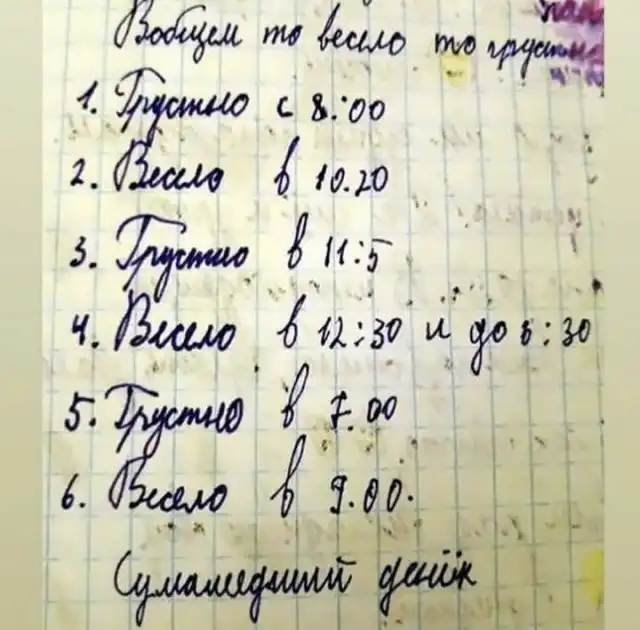 Вобщем то весело то грустно
1. Грустно с 8:00
2. Весело в 10.20
3. Грустно в 11:5
4. Весело в 12:30 и до 5:30
5. Грустно в 7.00
6. Весело в 9.00.
Сумашедший денёк